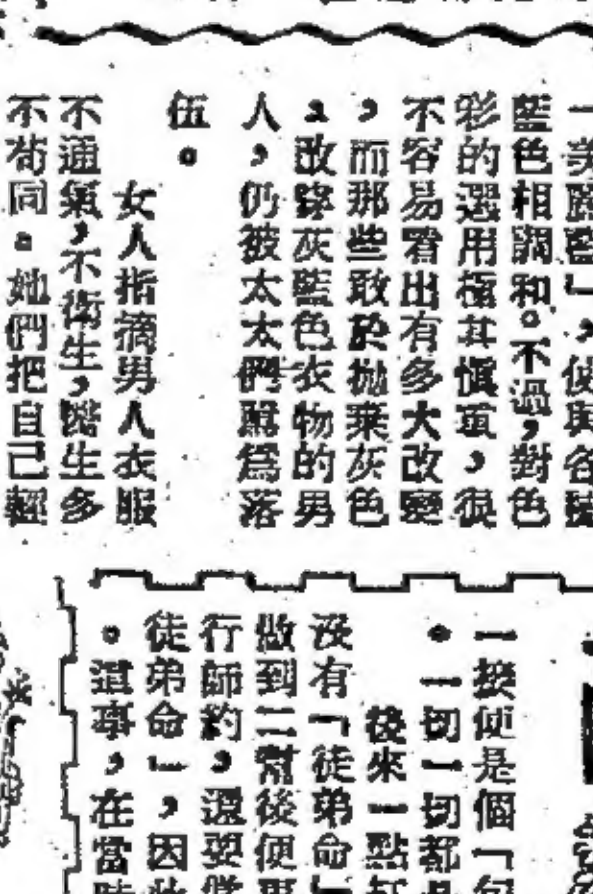 一美麗藍」，使與各種
藍色相調和。不過，對色
彩的選用極其慎重，很
不容易看出有多大改變
，而那些敢於拋棄灰色
，改穿灰藍色衣物的男
人，仍被太太們罵爲落
伍。
女人指摘男人衣服
不通氣，不衛生，醫生多
不苟同。她們把自己輕
一揆便是個「包
。一切一切都是
後來一點
沒有「徒弟命」
做到二幫後便
行師約，還要
徒弟命」，因此
。這事，在當時